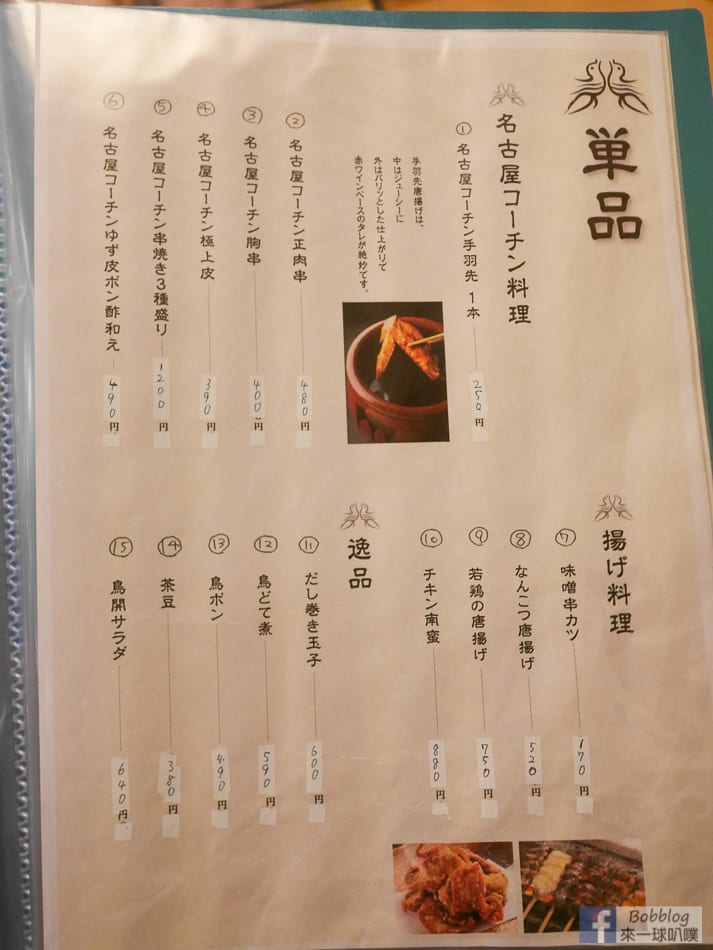 単品
名古屋コーチン料理
① 名古屋コーチン手羽先 1本 250円
手羽先唐揚げは、
中はジューシーに
外はパリッとした仕上がりで
赤ワインベースのタレが絶妙です。
② 名古屋コーチン正肉串 480円
③ 名古屋コーチン胸串 400円
④ 名古屋コーチン極上皮 390円
⑤ 名古屋コーチン串焼き3種盛り 1200円
⑥ 名古屋コーチンゆず皮ポン酢和え 490円
揚げ料理
⑦ 味噌串カツ 170円
⑧ なんこつ唐揚げ 520円
⑨ 若鶏の唐揚げ 750円
⑩ チキン南蛮 880円
逸品
⑪ だし巻き玉子 600円
⑫ 鳥どて煮 590円
⑬ 鳥ポン 490円
⑭ 茶豆 380円
⑮ 鳥開サラダ 640円
f Bobblog
來一球叭噗